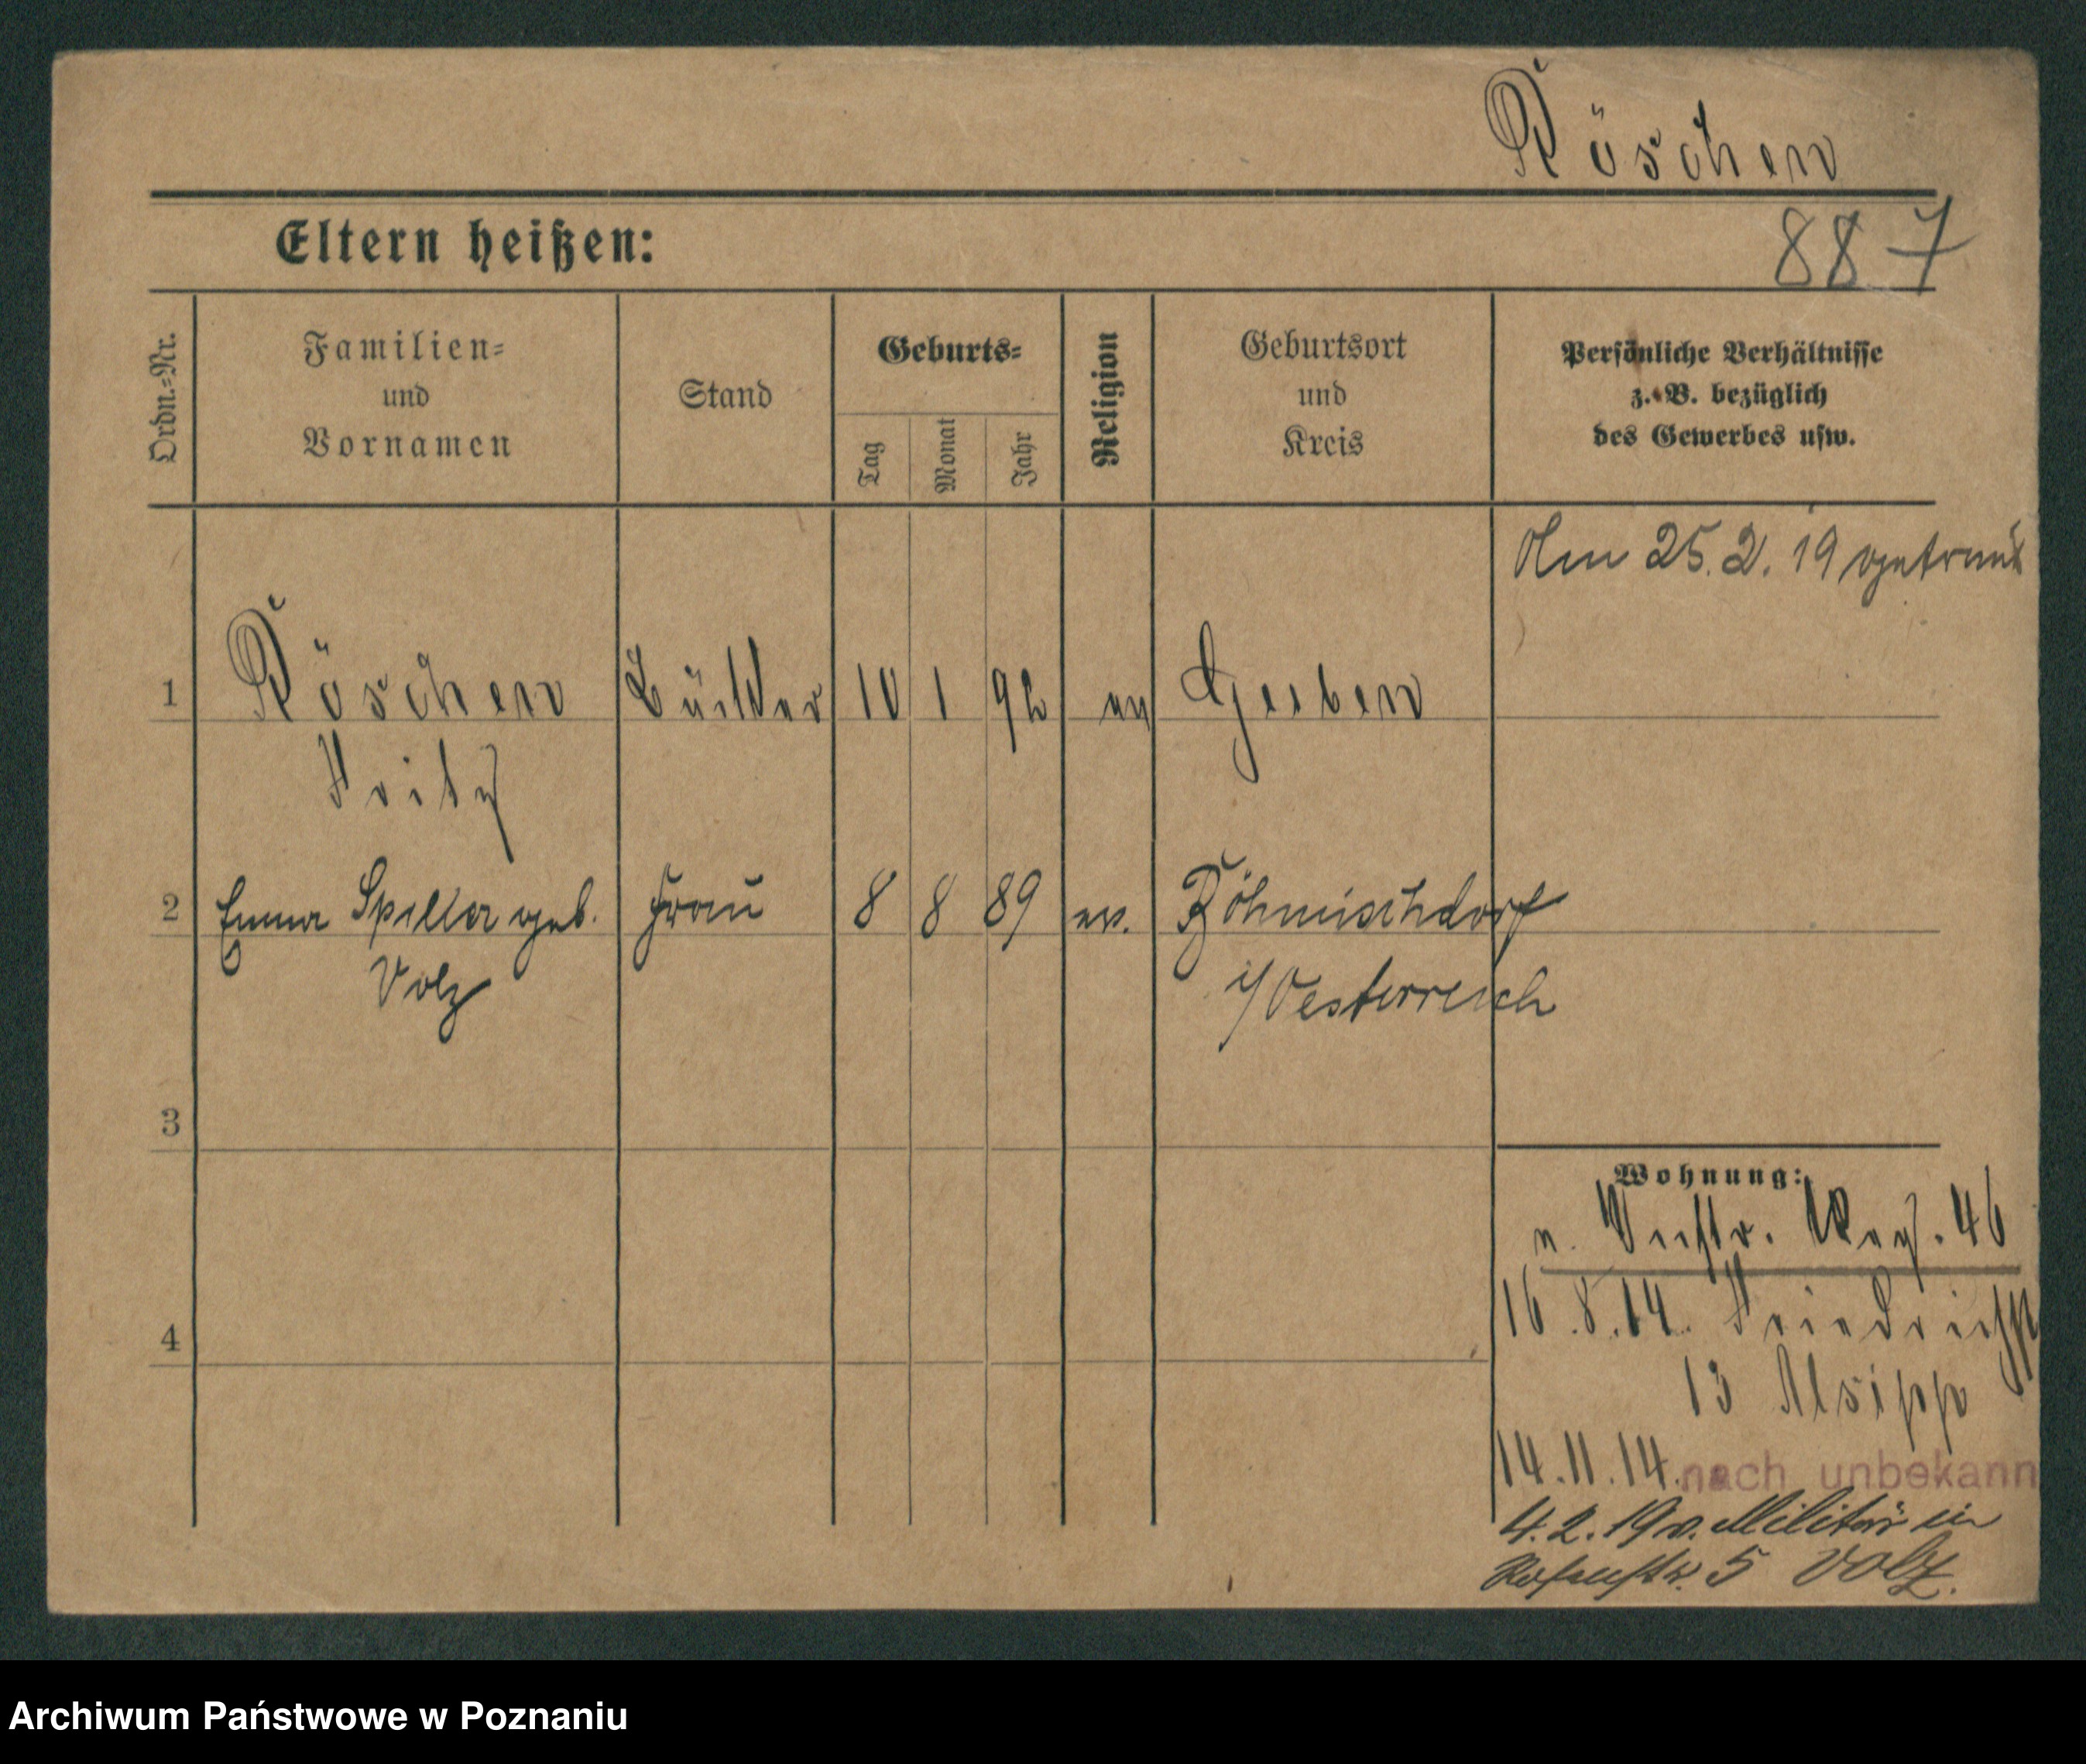 Röschen
Eltern heißen:
887
Ordn.-Nr.
Familien-
und
Vornamen
Stand
Geburts-
Tag
Monat
Jahr
Religion
Geburtsort
und
Kreis
Persönliche Verhältnisse
z. B. bezüglich
des Gewerbes usw.
Am 25.2.19 getraut
1 Röschen 10 1 92 ev Guben
Fritz
2 Emma Speller geb. Frau 8 8 89 ev. Böhmischdorf
Volz i/Oesterreich
3
4
Wohnung:
46
16.8.14. Friedrichstr
13
14.11.14. nach unbekann
4.2.19 v. Militär in
5 Volz.
Archiwum Państwowe w Poznaniu